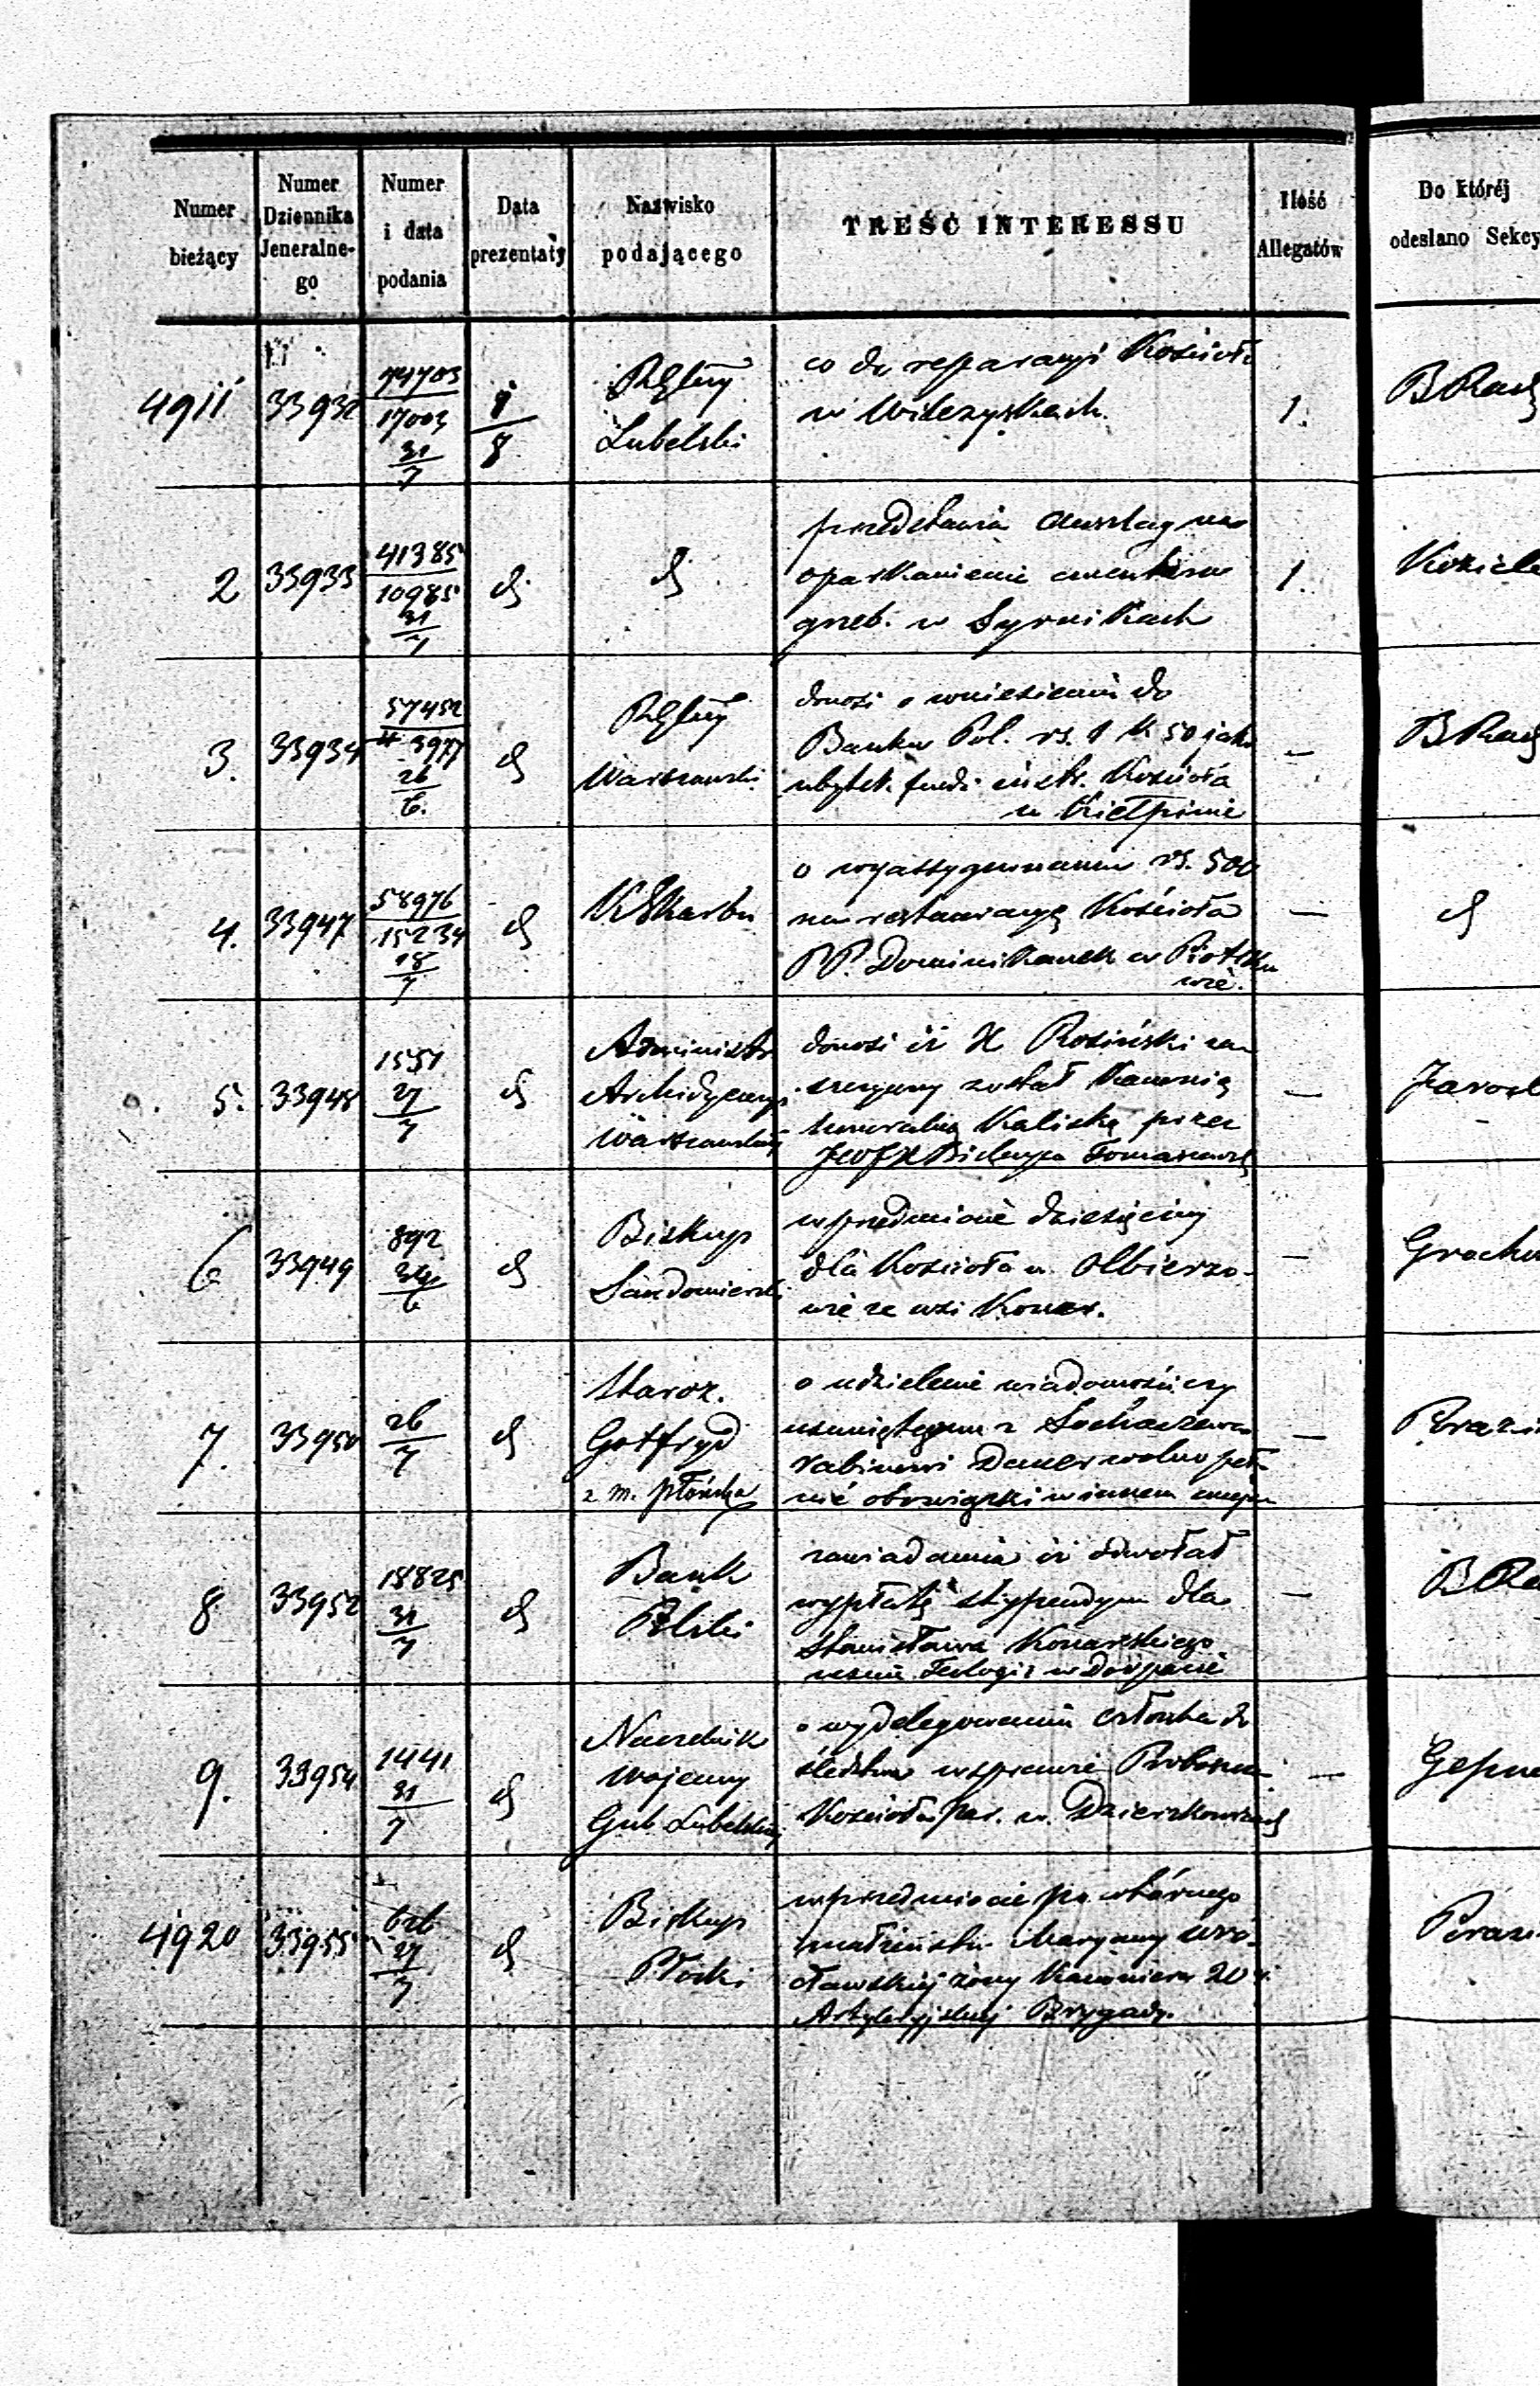 Numer bieżący
Numer Dziennika Jeneralnego
Numer i data podania
Data prezentaty
Nazwisko podającego
TREŚĆ INTERESSU
Ilość Allegatów
Do któréj odesłano Sekcy
4911 33932 44703 17003 31/7 1/8
RGłny
Lubelski
co do reparacyi Kościoła
w Wilczyskach.
1.
B Rad
2 33933 41385 10985 31/7 d
d
przedstawia anszlag na
oparkanienie cmentarza
grzeb. w Syrnikach
1.
3. 33934 57452 3977 26/6. d
RGłny
Warszawski
donosi o wniesieniu do
Banku Pol. rs. 1 k 50 jako
ubytek fund. instr. Kościoła
w Kiełpinie
—
B Rad
4. 33947 58976 15234 18/7 d
K Skarbu
o wyassygnowaniu rs. 500
na restauracyę Kościoła
PP. Dominikanek w Piotrko
wie.
—
d
5. 33948 1551 27/7 d
Administr
Archidyecezyi
Warszawskiej
donosi iż X Rosiński za
szczycony został Kanonią
honoralną Kaliską przez
JWJX Biskupa Tomaszews
—
6 33949 892 /6 d
Biskup
Sandomierski
w przedmiocie dziesięciny
dla Kościoła w Olbierzo-
wie ze wsi Konar.
—
7. 33950 26/7 d
Staroz.
Gotfryd
z m. Płońska
o udzielenie wiadomości czy
usuniętemu z Sochaczewa
rabinowi Dancer wolno peł-
nić obowiązki w innem
—
8 33952 18825 31/7 d
Bank
Polski
zawiadamia iż odwołał
wypłatę stypendyum dla
Stanisława Konarskiego
ucznia Teologii w Dorpacie
—
9. 33954 1441 31/7 d
Naczelnik
Wojenny
Gub. Lubelskiej
o wydelegowanie członka do
śledztwa w sprawie Proboszcza
Kościoła par. w Dzierzkowicach
—
4920 33955 626 27/7 d
Biskup
Płocki
w przedmiocie powtórnego
małżeństw Maryanny Wró-
cławskiej żony Kanoniera 20
Artyleryjskiej Brygady.